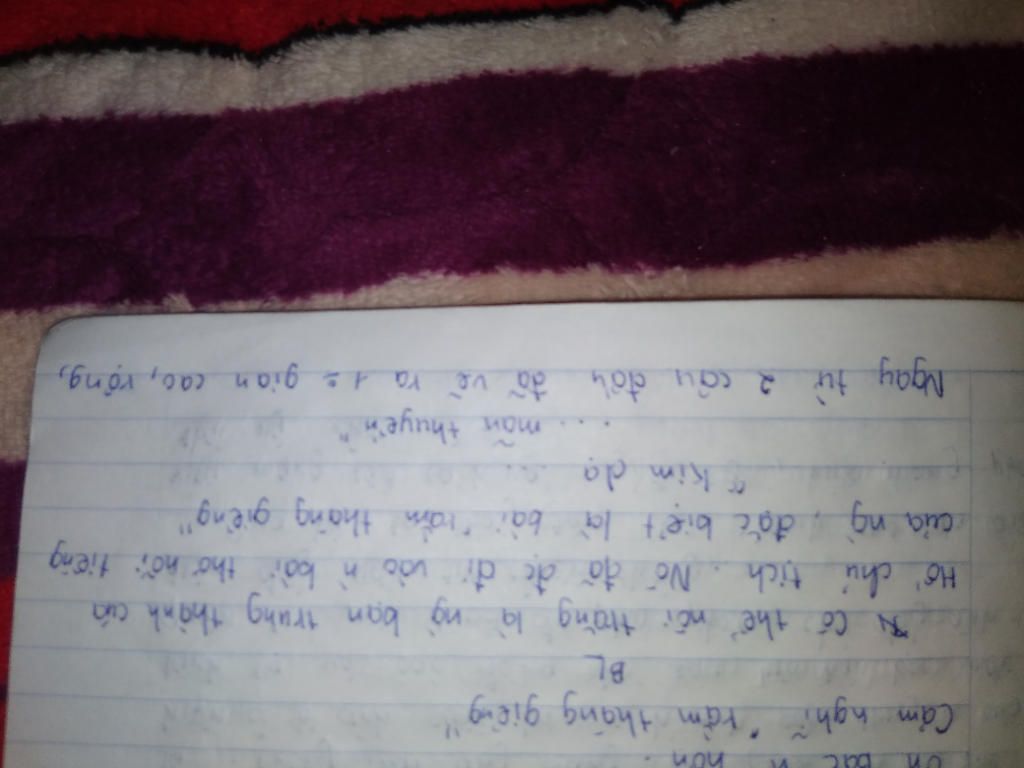 Cảm nghĩ "rằm tháng giêng"
BL
Có thể nói trăng là ng bạn trung thành của
Hồ chủ tịch. Nó đã đc đi vào n bài thơ nổi tiếng
của ng, đặc biệt là bài "rằm tháng giêng"
"Kim dạ
... mãn thuyền"
Ngay từ 2 câu đầu đã vẽ ra 1 = gian cao, rộng,